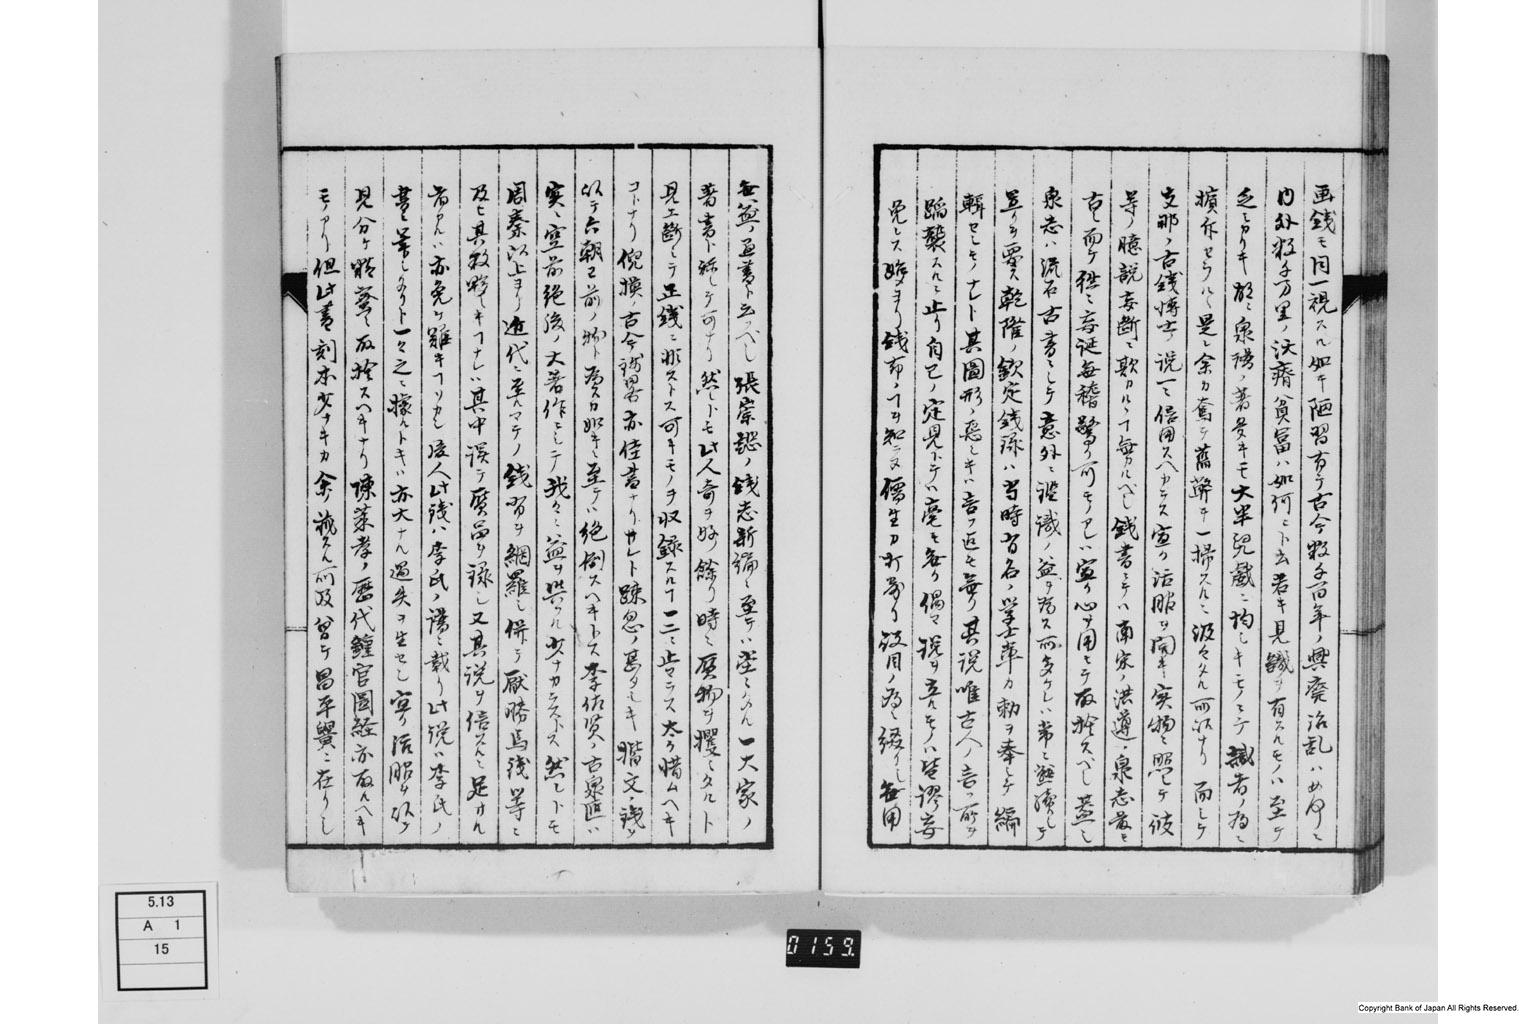 画銭モ同一視スル如キ陋習有テ古今数千百年ノ興廃治乱ハ如何ニ
内外数千万里ノ沃瘠貧富ハ如何ニト云若キ見識ヲ有スルモノハ至テ
之ニアリキ故ニ泉譜ノ著多キモ大半児戯ニ均シキモノニテ識者ノ為ニ
擯斥セラル是レ余カ奮テ旧弊ヲ一掃スルニ汲々タル所以ナリ而シテ
支那ノ古銭博士ノ説一モ信用スヘカラス宜ク活眼ヲ開キ実物ニ照シテ彼
等ノ臆説妄断ニ欺カルヽ丁無カルヘシ銭書ニテハ南宋ノ洪遵ノ泉志最モ
古シ而テ雑ニ妄誕無稽驚ク可モノアレハ宜ク心ヲ用ヒテ取捨スベシ蓋シ
泉志ハ流石古書ニシテ意外ニ鑑識ノ益ヲ為ス所多ケレハ常ニ熟読シテ
置クヲ要ス乾隆ノ欽定銭録ハ当時有名ノ学士輩カ勅ヲ奉シテ編
輯セシモノナレト其図形ノ悪シキハ言フ迄モ無ク其説唯古人ノ言フ所ヲ
蹈襲スルニ止リ自己ノ定見トテハ毫モ無ク偶マ説ヲ立ルモノハ皆謬妄
免レス畢竟銭幣ノ丁ヲ知ラヌ儒生カ打寄リ役目ノ為ニ綴リシ無用
無益ノ画書ト云ヘシ張崇懿ノ銭志新編ニ至テハ笑ニタヘス一大家ノ
著書ト称シテ可ナリ然レトモ此人奇ヲ好ム余リ時ニ贋物ヲ攫ミタルト
見エ断シテ正銭ニ非ストス可キモノヲ収録スル丁一二ニ止マラス太タ惜ムヘキ
コトナリ倪模ノ古今銭略亦佳書ナリサレト疎忽ノ甚タシキ階文ノ銭ヲ
以テ六朝已前ノ物ト為スカ如キニ至テハ絶倒スヘキトス李佐賢ノ古泉匯ハ
実ニ空前絶後ノ大著作ニシテ我々ニ益ヲ与フル少ナカラストス然レトモ
周秦以上ヨリ近代ニ至ルマテノ銭幣ヲ網羅シ併テ厭勝馬銭等ニ
及ヒ其数夥キ丁ナレハ其中誤テ贋品ヲ録シ又其説ヲ信スルニ足サル
者アルハ亦免レ難キ丁ソカシ後人此銭ハ李氏ノ譜ニ載リ此説ハ李氏ノ
書ニ筆シアリト一々之ニ拠ルトキハ亦大ナル過失ヲ生セン宜ク活眼ヲ以テ
見分ケ明鑒シ取捨スヘキナリ陳莱孝ノ歴代鐘官図経亦取ルヘキ
モノアリ但此書刻本少ナキカ余ノ蔵スル所及曽テ昌平黌ニ在リシ
5.13
A 1
15
0159.
Copyright Bank of Japan All Rights Reserved.